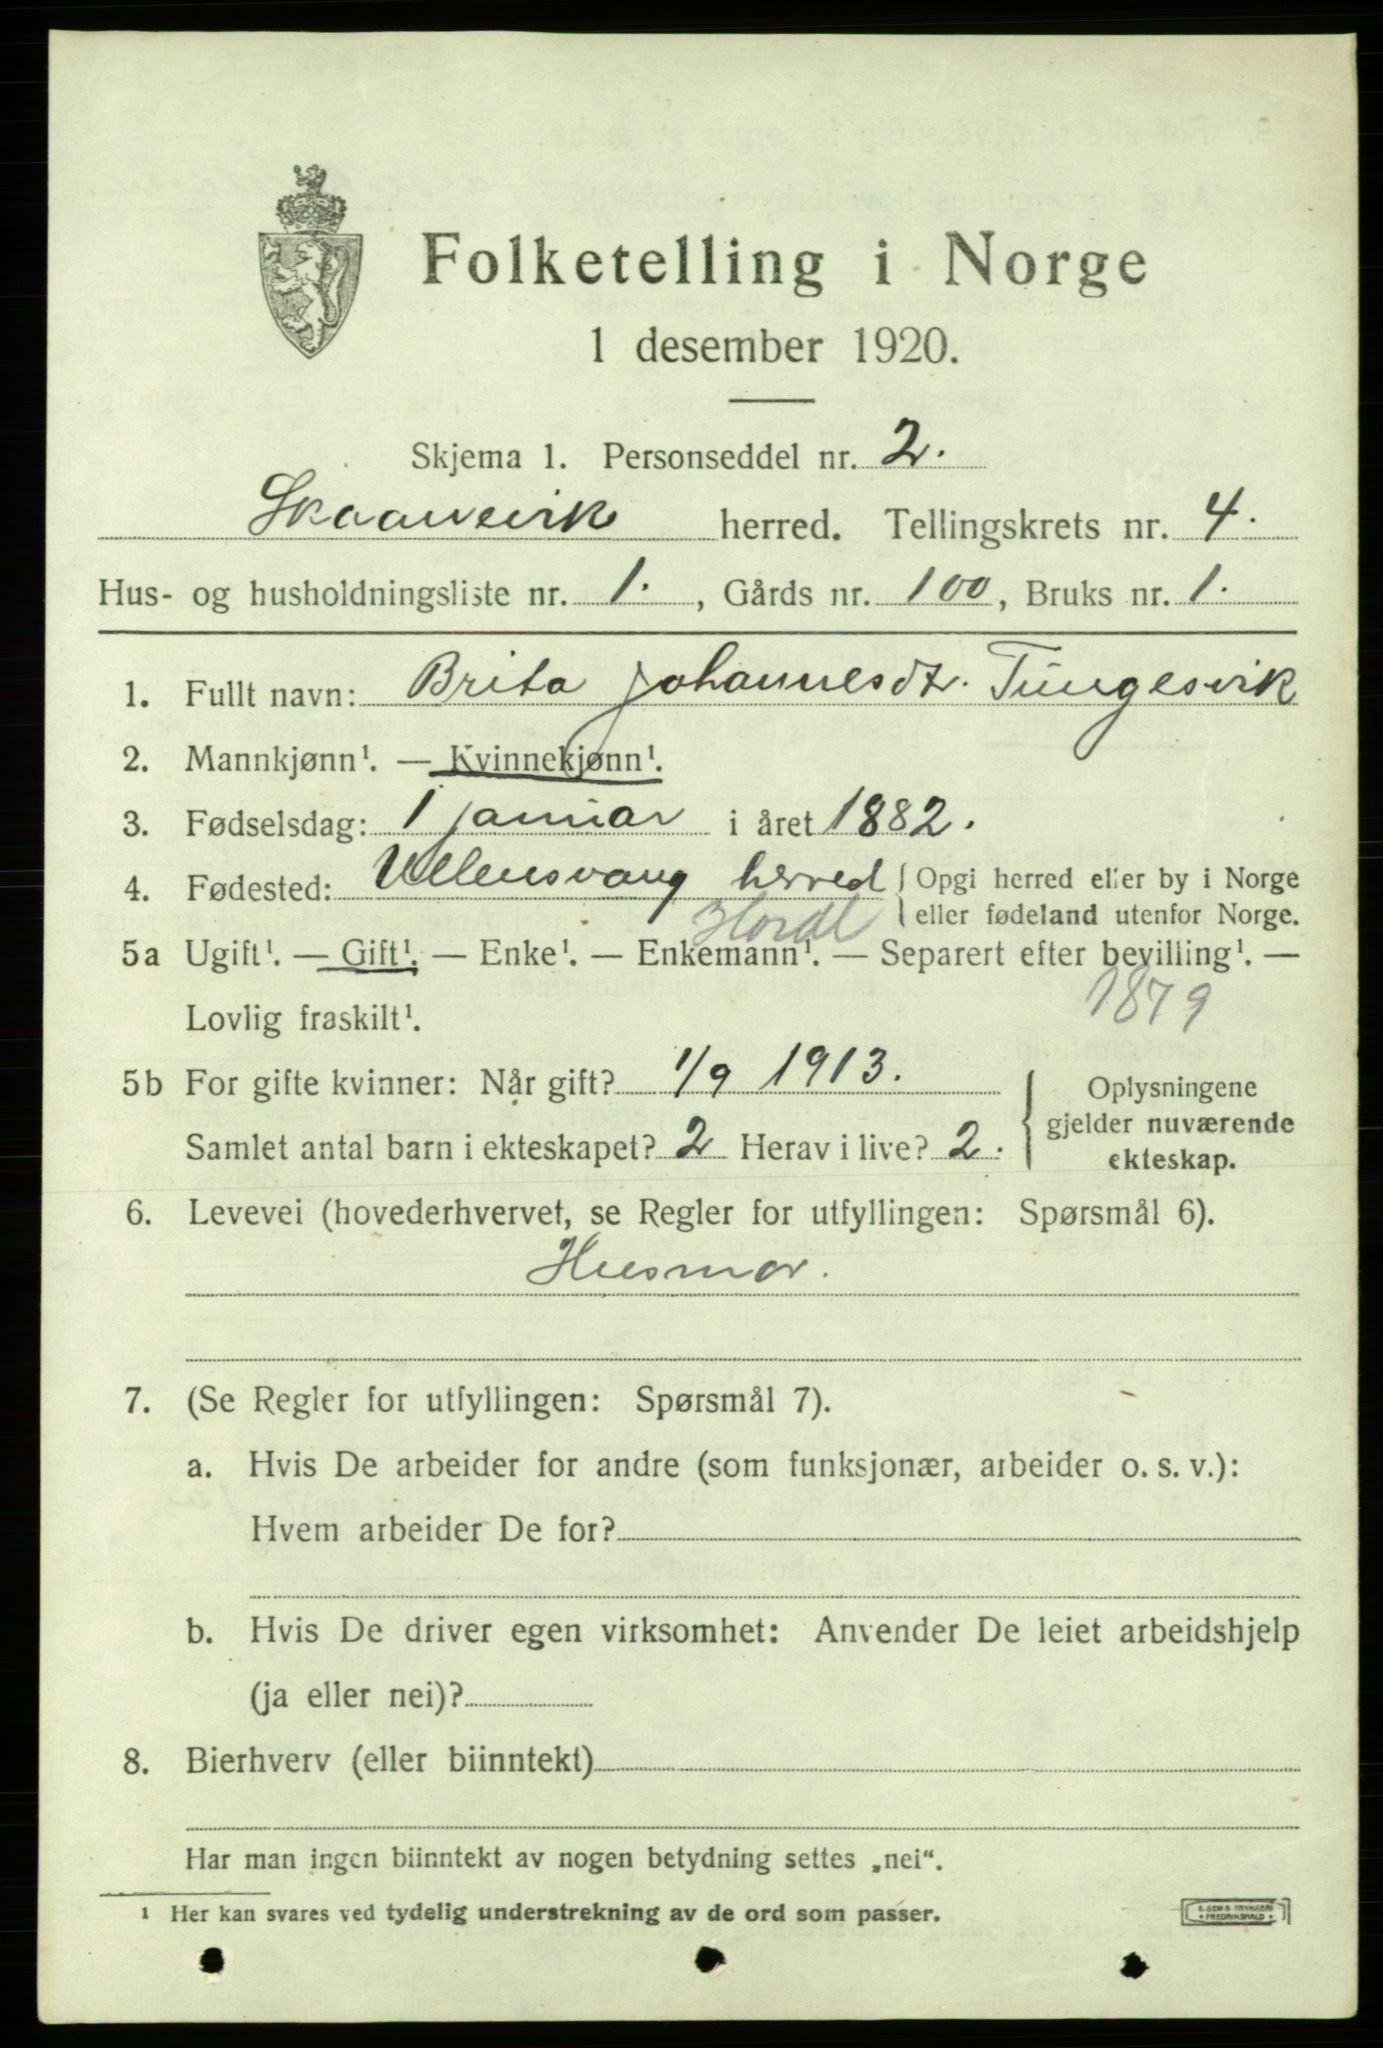 Folketelling i Norge
1 desember 1920.
Skjema 1. Personseddel nr. 2.
Skaanevik herred. Tellingskrets nr. 4.
Hus- og husholdningsliste nr. 1., Gårds nr. 100, Bruks nr. 1.
1. Fullt navn: Brita Johannesdtr. Tungesvik
2. Mannkjønn¹. — Kvinnekjønn¹.
3. Fødselsdag: 1 januar i året 1882.
4. Fødested: Ullensvang herred { Opgi herred eller by i Norge
eller fødeland utenfor Norge.
Hordl
5a Ugift¹. — Gift¹. — Enke¹. — Enkemann¹. — Separert efter bevilling¹. —
Lovlig fraskilt¹.
1879
5b For gifte kvinner: Når gift? 1/9 1913.
Samlet antal barn i ekteskapet? 2 Herav i live? 2.
Oplysningene
gjelder nuværende
ekteskap.
6. Levevei (hovederhvervet, se Regler for utfyllingen: Spørsmål 6).
Husmor.
7. (Se Regler for utfyllingen: Spørsmål 7).
a. Hvis De arbeider for andre (som funksjonær, arbeider o. s. v.):
Hvem arbeider De for?
b. Hvis De driver egen virksomhet: Anvender De leiet arbeidshjelp
(ja eller nei)?
8. Bierhverv (eller biinntekt)
Har man ingen biinntekt av nogen betydning settes „nei“.
¹ Her kan svares ved tydelig understrekning av de ord som passer.
E. SEM'S TRYKKERI
• FREDRIKSHALD •